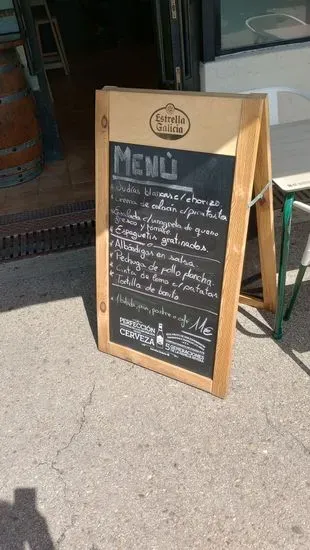 Estrella
Galicia
MENÚ
Judías blancas c/ chorizo
Crema de calabacín c/ picatostes
Ensalada c/ vinagreta de queso
fresco y tomate
Espaguetis gratinados.
Albóndigas en salsa
Pechuga de pollo plancha
Cinta de lomo c/ patatas
Tortilla de bonito
Bebida, pan, postre o café 11€
PERFECCIÓN
CERVEZA
5 GENERACIONES